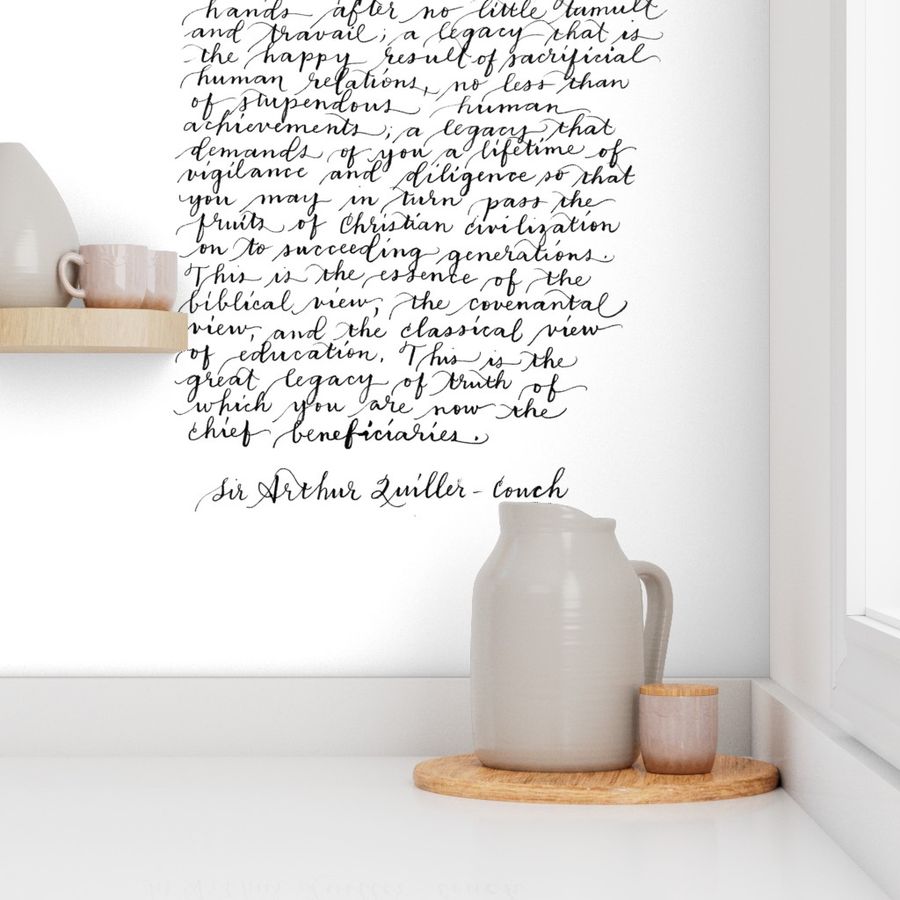 hands after no little tumult
and travail; a legacy that is
the happy result of sacrificial
human relations, no less than
of stupendous human
achievements; a legacy that
demands of you a lifetime of
vigilance and diligence so that
you may in turn pass the
fruits of Christian civilization
on to succeeding generations.
This is the essence of the
biblical view, the covenantal
view, and the classical view
of education. This is the
great legacy of truth of
which you are now the
chief beneficiaries.
Sir Arthur Quiller-Couch